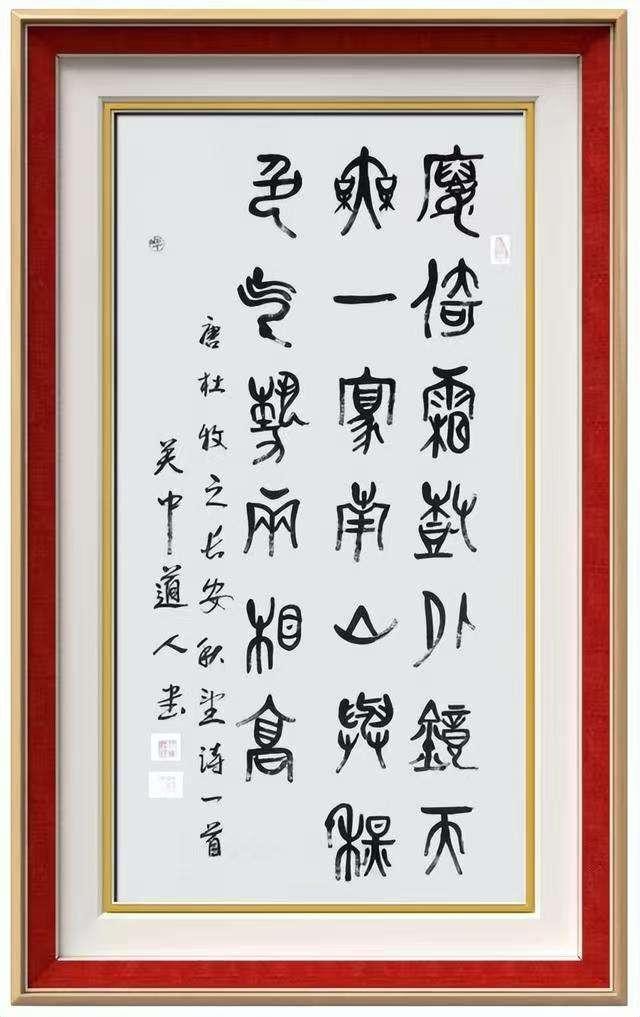 廔倚霜尌外鏡天
無一豪南山與秋
色气勢兩相高
唐杜牧之長安秋望詩一首
吴中道人書